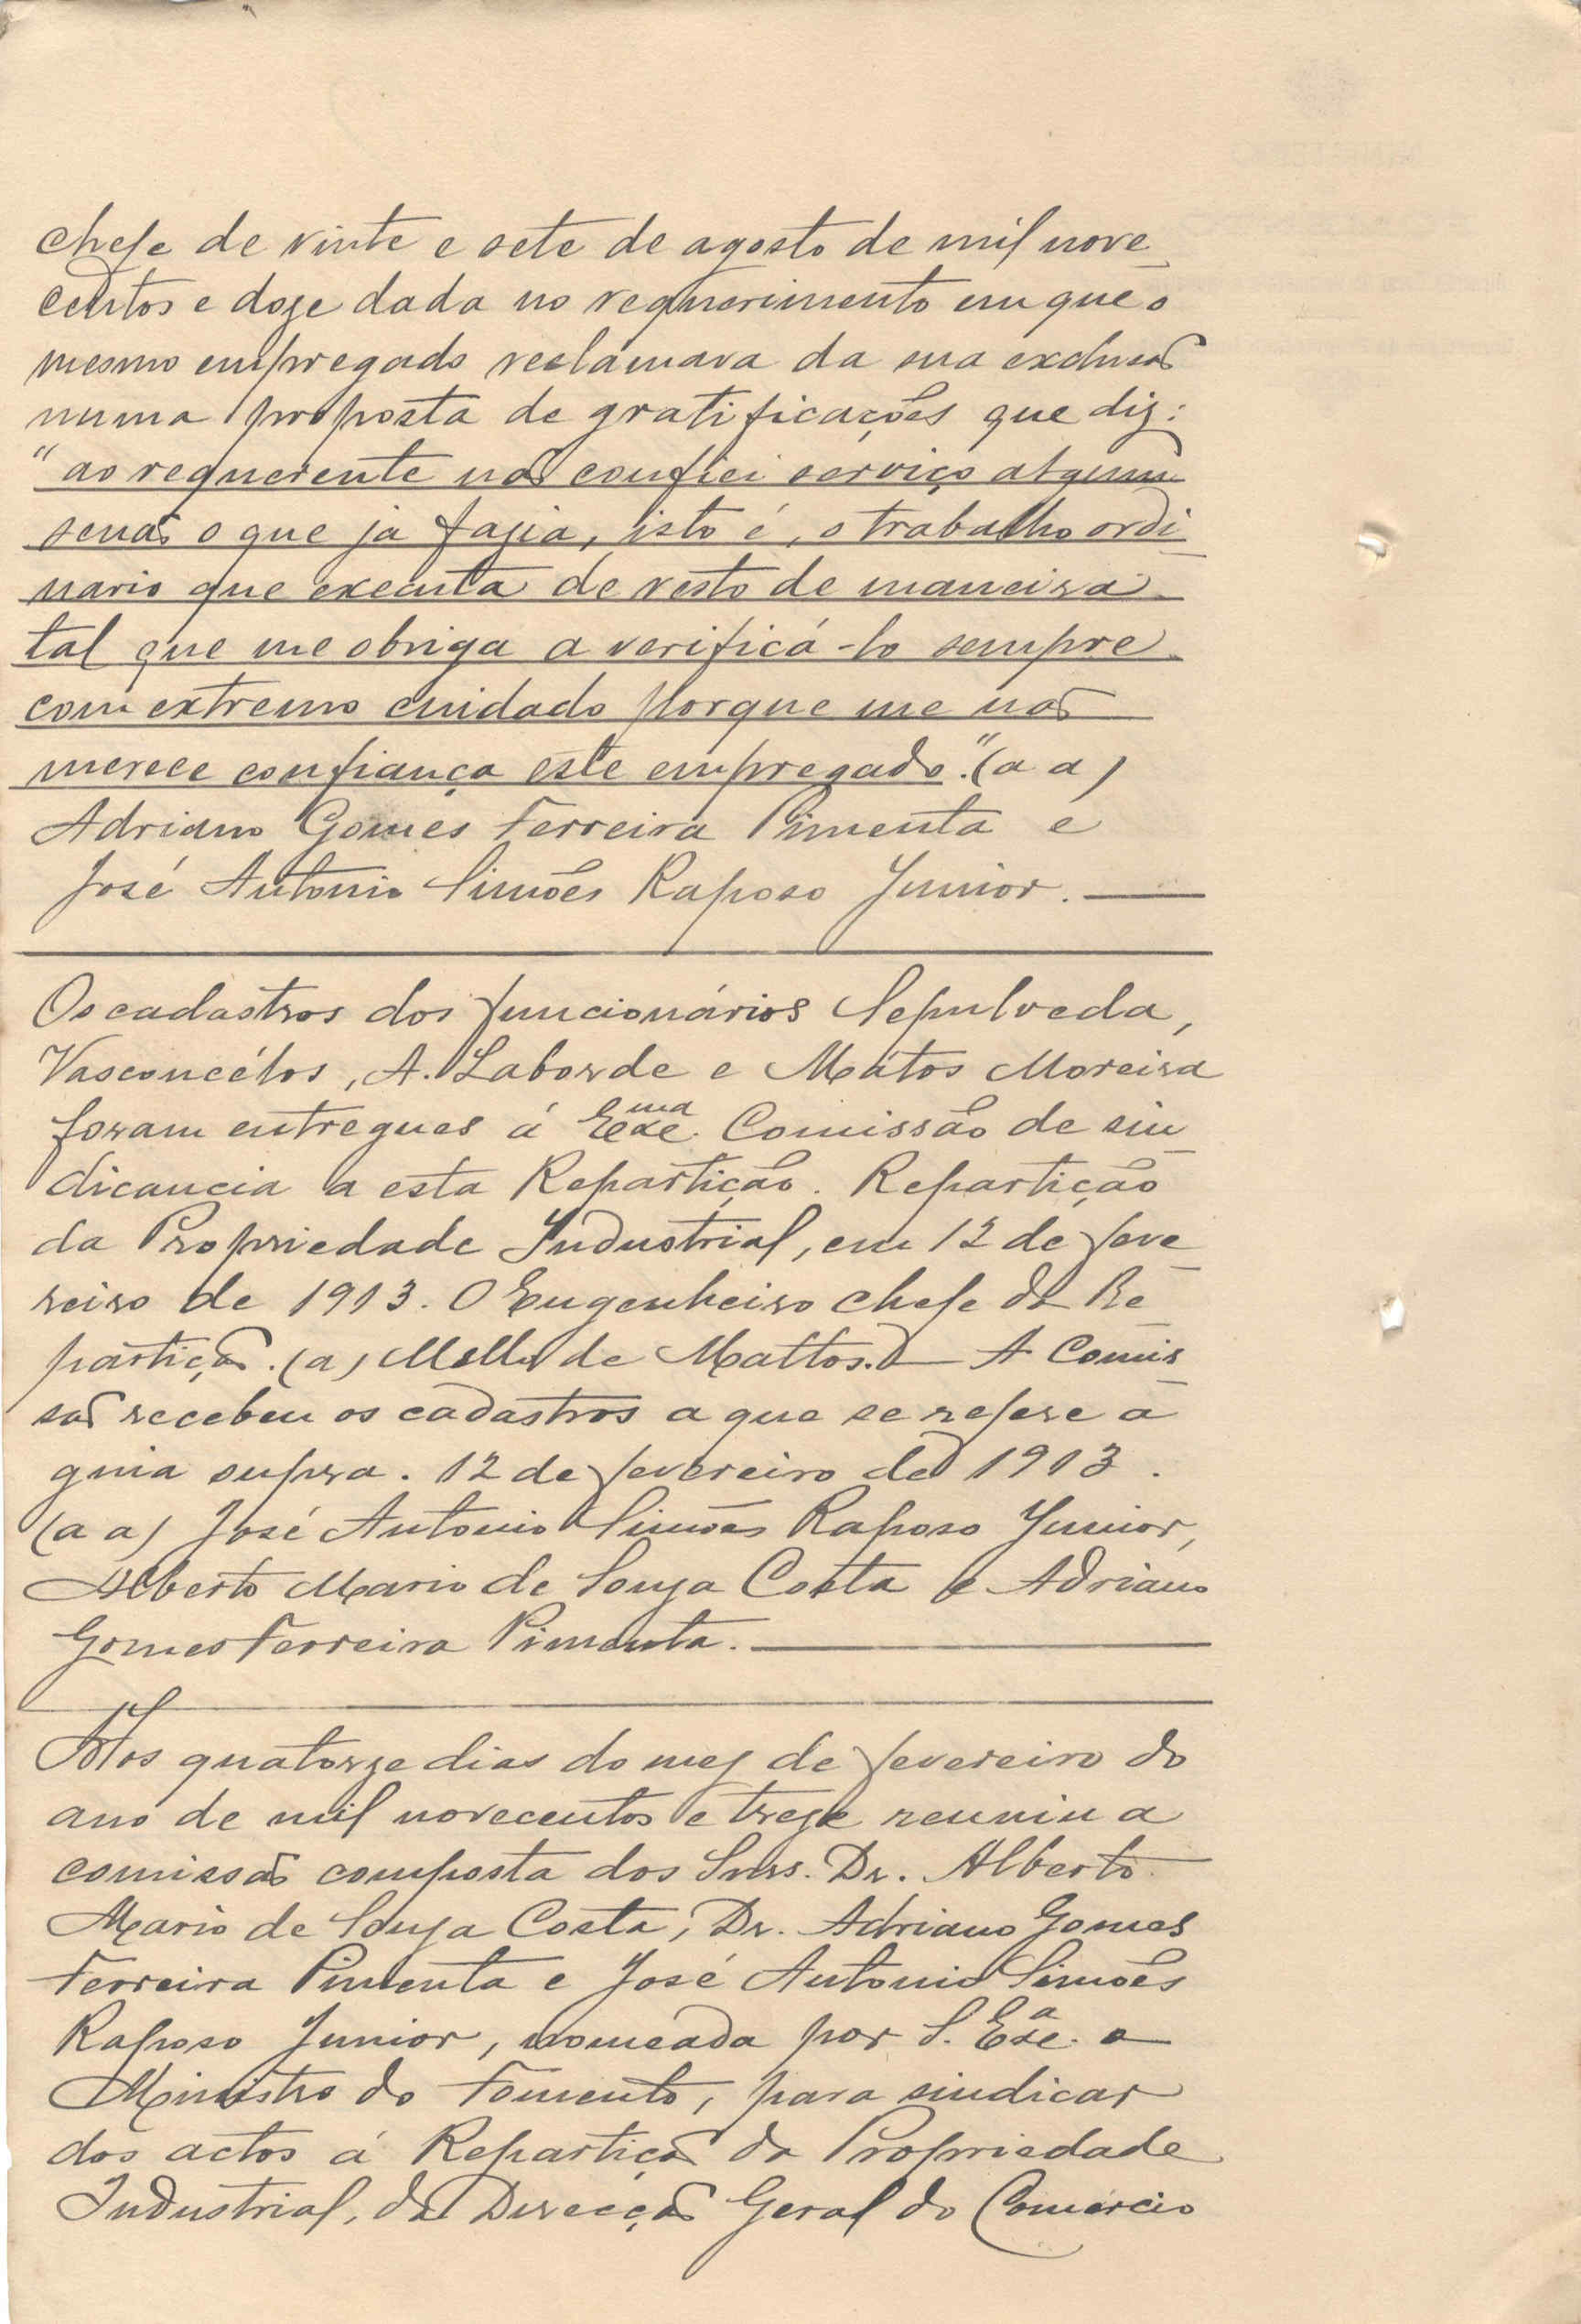 chefe de vinte e sete de agosto de mil nove-
centos e doze dada no requerimento em que o
mesmo empregado reclamava da sua exclusão
numa proposta de gratificações que diz:
"ao requerente não confiei serviço algum
senão o que já fazia, isto é, o trabalho ordi-
nario que executa de resto de maneira
tal que me obriga a verificá-lo sempre
com extremo cuidado porque me não
merece confiança este empregado". (a a)
Adriano Gomes Ferreira Pimenta e
José Antonio Simões Raposo Junior.
Os cadastros dos funcionários Sepulveda,
Vasconcélos, A. Laborde e Matos Moreira
foram entregues á Exc.ma Comissão de sin-
dicancia a esta Repartição. Repartição
da Propriedade Industrial, em 12 de feve-
reiro de 1913. O Engenheiro chefe da Re-
partição. (a) Mello de Mattos. — A Comis-
são recebeu os cadastros a que se refere a
guia supra. 12 de fevereiro de 1913.
(a a) José Antonio Simões Raposo Junior,
Alberto Mario de Souza Costa e Adriano
Gomes Ferreira Pimenta.
Aos quatorze dias do mez de fevereiro do
ano de mil novecentos e treze reuniu a
comissão composta dos Snrs. Dr. Alberto
Mario de Souza Costa, Dr. Adriano Gomes
Ferreira Pimenta e José Antonio Simões
Raposo Junior, nomeada por S. Exc.a o
Ministro do Fomento, para sindicar
dos actos á Repartição da Propriedade
Industrial, da Direcção Geral do Comércio